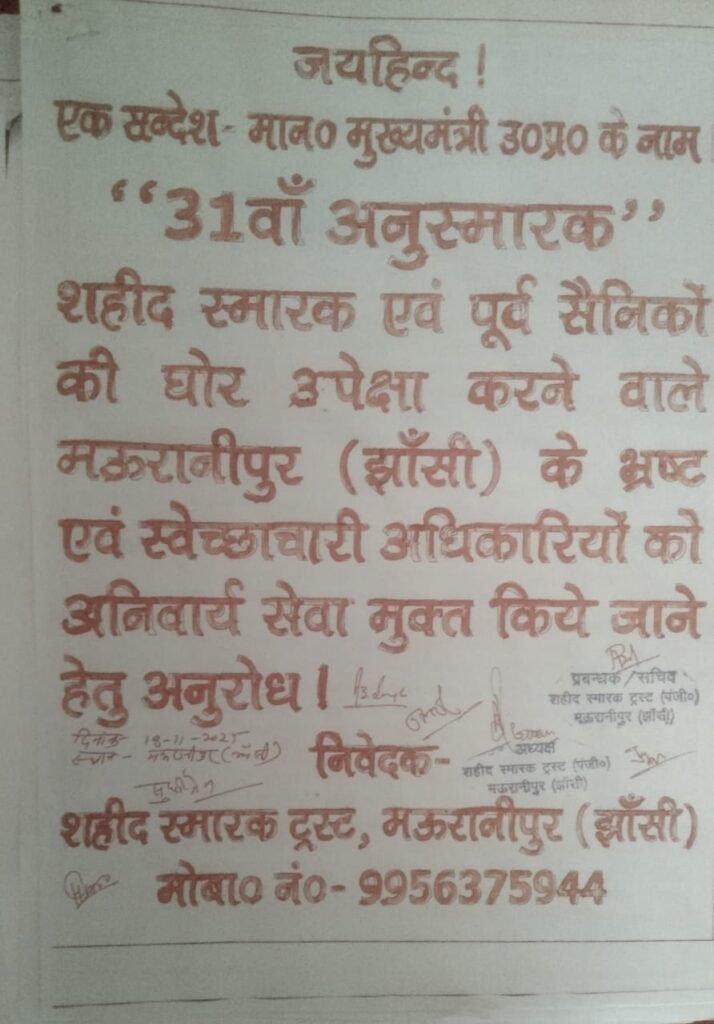 जयहिन्द !
एक सन्देश- मान० मुख्यमंत्री उ०प्र० के नाम
“31वाँ अनुस्मारक”
शहीद स्मारक एवं पूर्व सैनिकों
की घोर उपेक्षा करने वाले
मऊरानीपुर (झाँसी) के भ्रष्ट
एवं स्वेच्छाचारी अधिकारियों को
अनिवार्य सेवा मुक्त किये जाने
हेतु अनुरोध।
प्रबन्धक/सचिव
शहीद स्मारक ट्रस्ट (पंजी०)
मऊरानीपुर (झाँसी)
दिनांक 18-11-2025
स्थान - मऊरानीपुर (झाँसी)
निवेदक-
अध्यक्ष
शहीद स्मारक ट्रस्ट (पंजी०)
मऊरानीपुर (झाँसी)
शहीद स्मारक ट्रस्ट, मऊरानीपुर (झाँसी)
मोबा० नं०- 9956375944